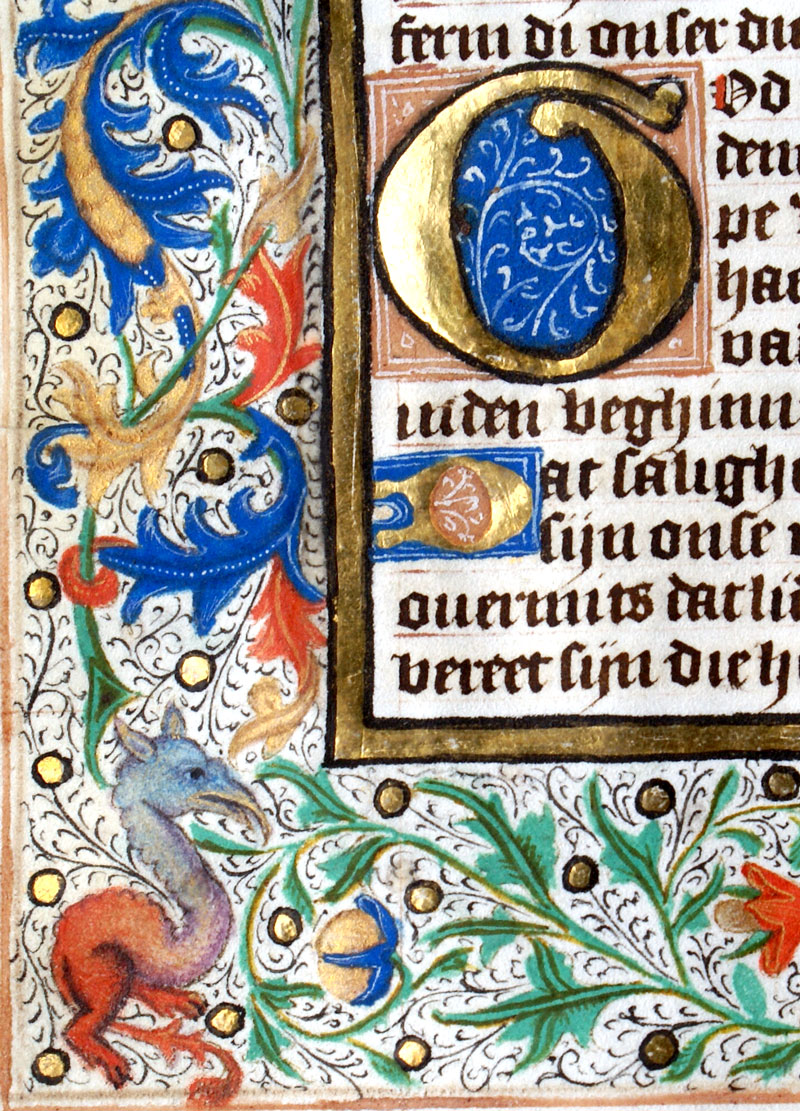 ferm di onser du
God
den
pe
hae
va
inden beghinn
Dat saligh
sijn onse
ouermits dat lic
vereet sijn die h